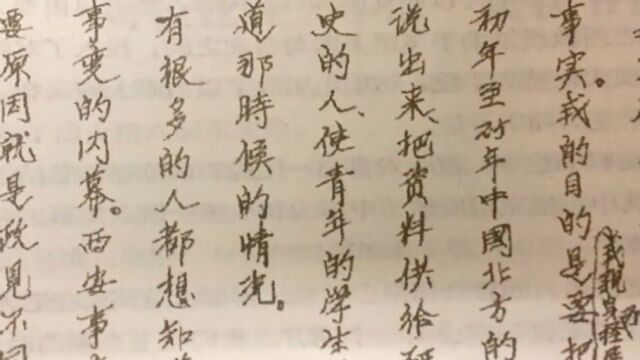 事实。我的目的是要把
初年至25年中國北方的
说出来、把资料供给研
史的人、使青年的学生
道那時候的情况。
有很多的人都想知道
事变的内幕。西安事
要原因就是政見不同